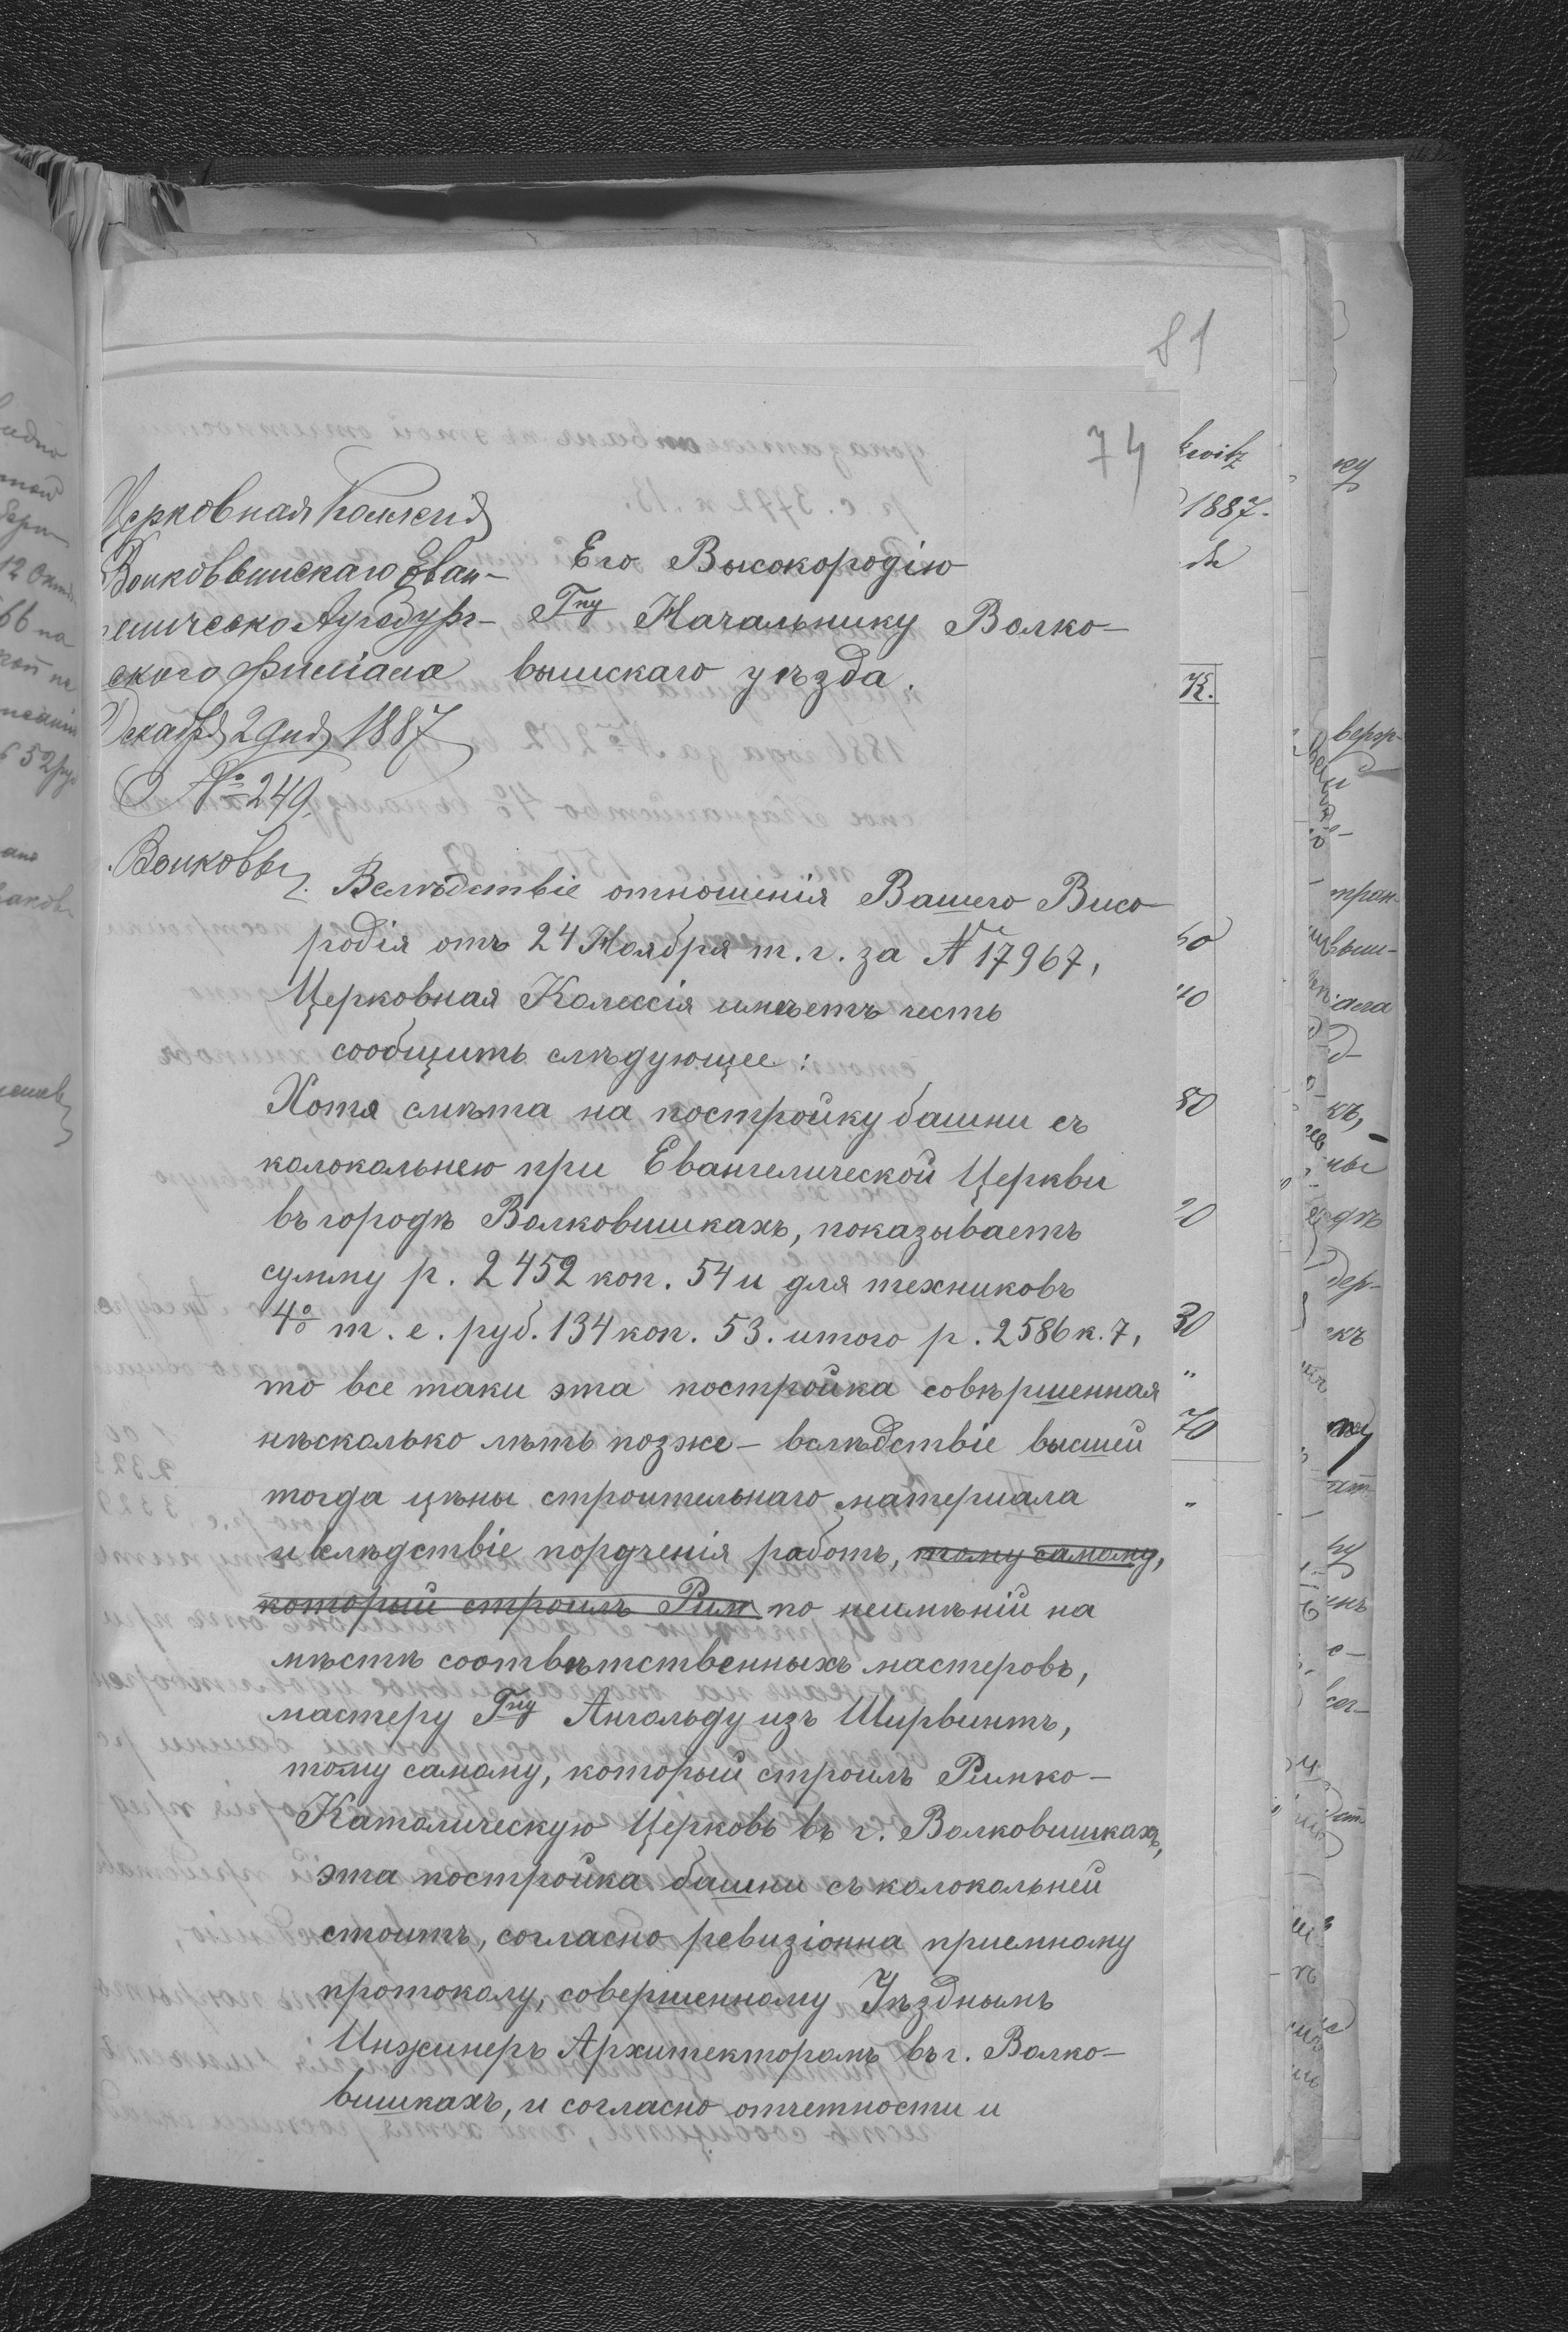 81
74
Церковная Коллегія
Волковышскаго Еван-
гелическо Аугсбург-
скаго Филіала
Декабря 2 дня 1887
№ 249.
Волковы
Его Высокородію
Гну Начальнику Волко-
вышскаго уѣзда.
Вслѣдствіе отношенія Вашего Висо
родія отъ 24 Ноября т. г. за № 17967,
Церковная Колессія имѣетъ честь
сообщить слѣдующее:
Хотя смѣта на постройку башни съ
колокольнею при Евангелической Церкви
въ городѣ Волковишкахъ, показываетъ
сумму р. 2452 коп. 54 и для техниковъ
4% т. е. руб. 134 коп. 53. итого р. 2586 к. 7,
то все таки эта постройка совѣршенная
нѣсколько лѣтъ позже – вслѣдствіе высшей
тогда цѣны строительнаго матеріала
и вслѣдствіе порученія работъ, тому самому,
который строилъ Рим по неимѣніи на
мѣстѣ соотвѣтственныхъ мастеровъ,
мастеру Гну Ангольду изъ Ширвинтъ,
тому самому, который строилъ Римко-
Католическую Церковь въ г. Волковишкахъ,
эта постройка башни съ колокольней
стоитъ, согласно ревизіонна приемному
протоколу, совершенному Уѣзднымъ
Инжинеръ Архитекторомъ въ г. Волко-
вишкахъ, и согласно отчетности и
1887.
К.
40
20
30
"
70